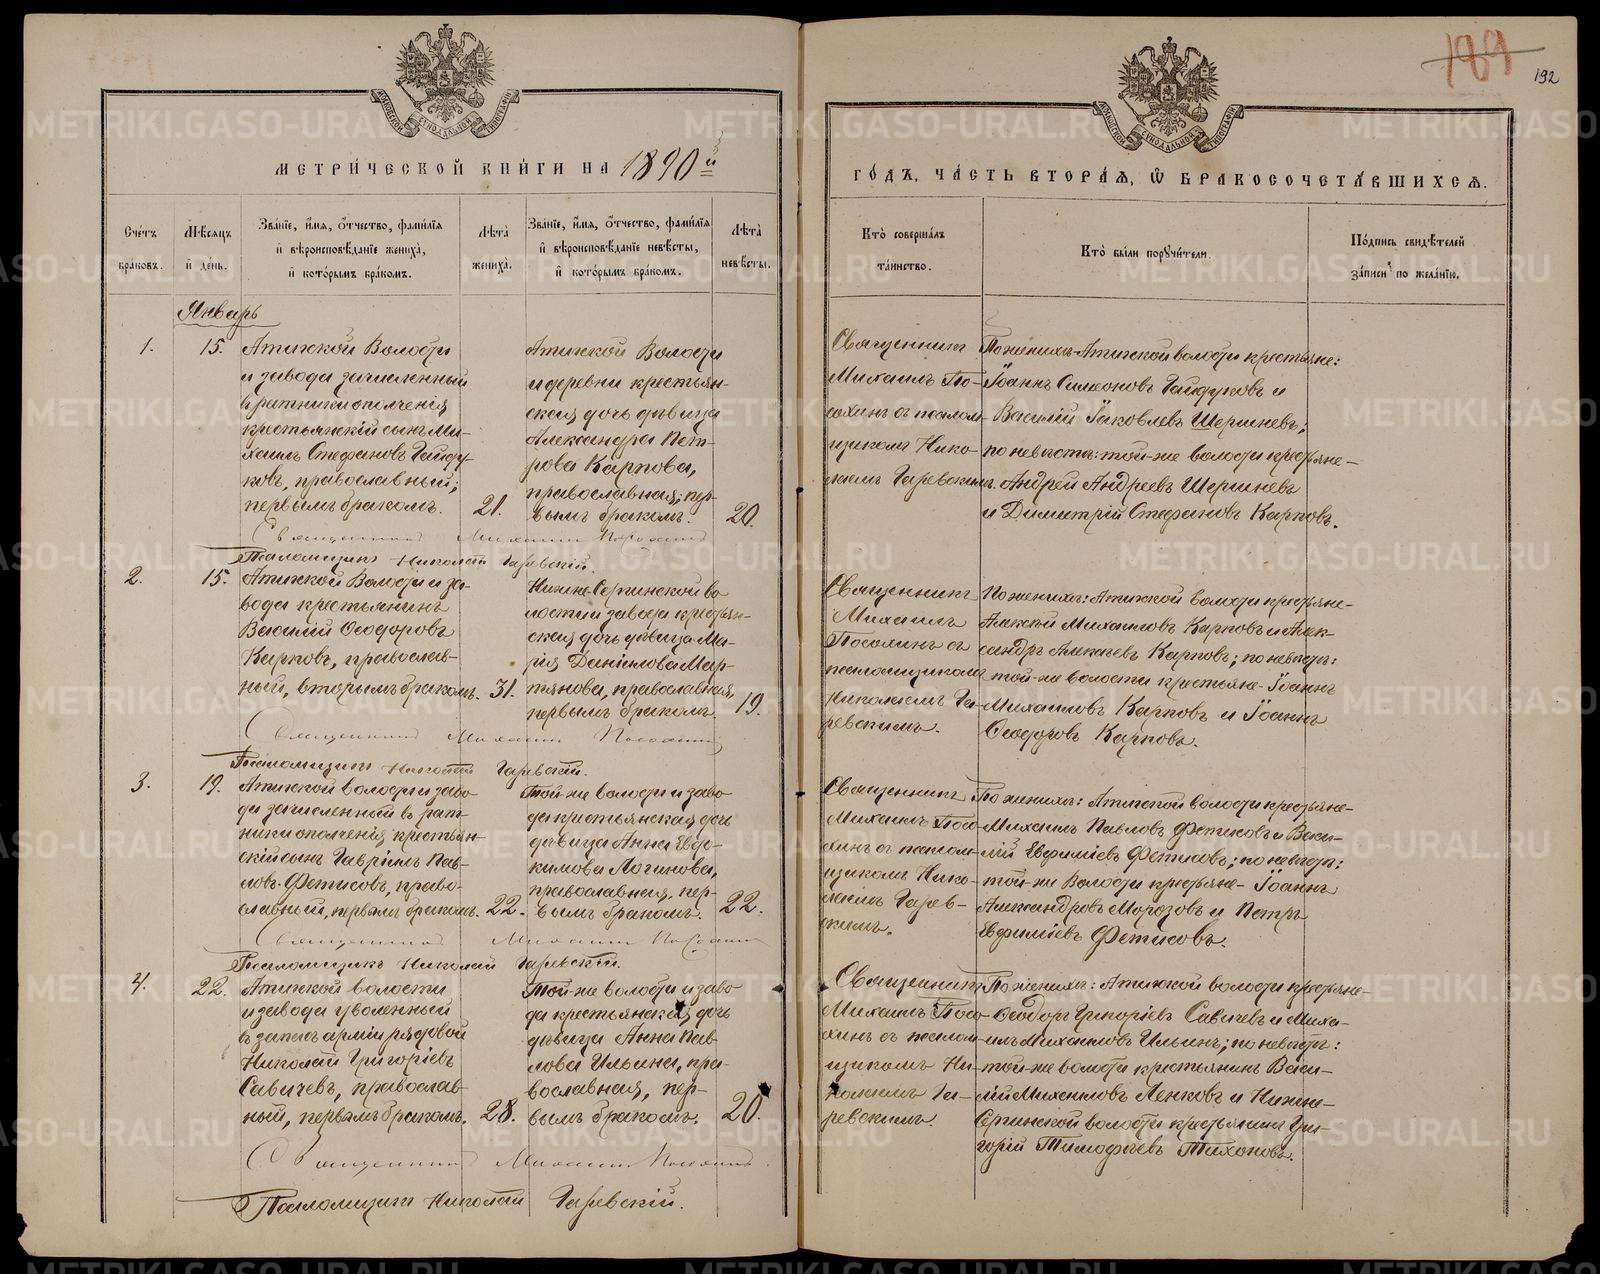 МЕТРИЧЕСКОЙ КНИГИ НА 1890 й
ГОДЪ, ЧАСТЬ ВТОРАЯ, Ѡ БРАКОСОЧЕТАВШИХСЯ.
189
192
Счетъ браковъ.
Мѣсяцъ и день.
Званіе, имя, отчество, фамилія
и вѣроисповѣданіе жениха,
и которымъ бракомъ.
Лѣта жениха.
Званіе, имя, отчество, фамилія
и вѣроисповѣданіе невѣсты,
и которымъ бракомъ.
Лѣта невѣсты.
Кто совершалъ
таинство.
Кто были поручители.
Подпись свидѣтелей
записи по желанію.
Январь
1.
15.
Атижской Волости
и завода зачисленный
въ ратники ополченія
крестьянскій сынъ Ми-
хаилъ Стефановъ Гайду-
ковъ, православный;
первымъ бракомъ.
21.
Атижской Волости
и деревни крестьян-
ская дочь дѣвица
Александра Пет-
рова Карпова,
православная; пер-
вымъ бракомъ.
20.
Священникъ
Михаилъ По-
сохинъ съ псалом-
щикомъ Нико-
лаемъ Гаревскимъ.
По женихѣ: Атижской волости крестьяне:
Іоаннъ Симеоновъ Гайдуковъ и
Василій Іаковлевъ Шершневъ;
по невѣстѣ: той-же волости крестьяне-
Андрей Андреевъ Шершневъ
и Димитрій Стефановъ Карповъ.
Священникъ Михаилъ Посохинъ
Псаломщикъ Николай Гаревскій.
2.
15.
Атижской Волости и за-
вода крестьянинъ
Василій Ѳеодоровъ
Карповъ, православ-
ный, вторымъ бракомъ.
31.
Нижне-Сергинской во-
лости и завода крестьян-
ская дочь дѣвица Ма-
рія Даніилова Мар-
тьянова, православная,
первымъ бракомъ.
19.
Священникъ
Михаилъ
Посохинъ съ
псаломщикомъ
Николаемъ Га-
ревскимъ.
По женихѣ: Атижской волости крестьяне-
Алексѣй Михаиловъ Карповъ и Алек-
сандръ Алексѣевъ Карповъ; по невѣстѣ:
той-же волости крестьяне- Іоаннъ
Михаиловъ Карповъ и Іоаннъ
Ѳеодоровъ Карповъ.
Священникъ Михаилъ Посохинъ
Псаломщикъ Николай Гаревскій.
3.
19.
Атижской волости и заво-
да зачисленный въ рат-
ники ополченія, крестьян-
скій сынъ Гавріилъ Пав-
ловъ Фетисовъ, право-
славный, первымъ бракомъ.
22.
Той-же волости и заво-
да крестьянская дочь
дѣвица Анна Евдо-
кимова Логинова,
православная, пер-
вымъ бракомъ.
22.
Священникъ
Михаилъ Посо-
хинъ съ псалом-
щикомъ Нико-
лаемъ Гарев-
скимъ.
По женихѣ: Атижской волости крестьяне-
Михаилъ Павловъ Фетисовъ и Васи-
лій Евфиміевъ Фетисовъ; по невѣстѣ:
той-же Волости крестьяне- Іоаннъ
Александровъ Морозовъ и Петръ
Евфиміевъ Фетисовъ.
Священникъ Михаилъ Посохинъ
Псаломщикъ Николай Гаревскій.
4.
22.
Атижской волости
и завода уволенный
въ запасъ арміи рядовой
Николай Григоріевъ
Савичевъ, православ-
ный, первымъ бракомъ.
28.
Той-же волости и заво-
да крестьянская дочь
дѣвица Анна Пав-
лова Ильина, пра-
вославная, пер-
вымъ бракомъ.
20.
Священникъ
Михаилъ Посо-
хинъ съ псалом-
щикомъ Ни-
колаемъ Га-
ревскимъ.
По женихѣ: Атижской волости крестьяне-
Ѳеодоръ Григоріевъ Савичевъ и Миха-
илъ Михаиловъ Ильинъ; по невѣстѣ:
той-же волости крестьянинъ Васи-
лій Михаиловъ Ленковъ и Нижне-
Сергинской волости крестьянинъ Гри-
горій Тимоѳеевъ Тихоновъ.
Священникъ Михаилъ Посохинъ.
Псаломщикъ Николай Гаревскій.